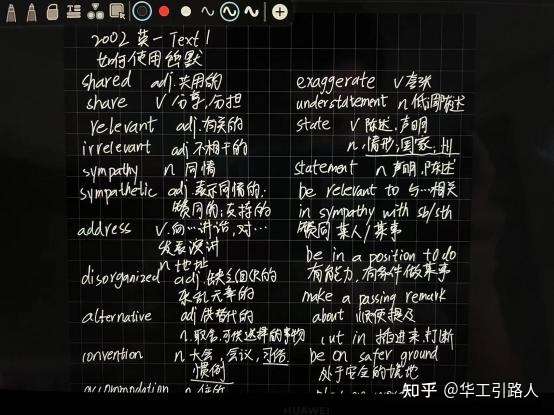 2002 英一 Text 1
如何使用幽默
shared adj.共用的
share v 分享,分担
relevant adj.有关的
irrelevant adj 不相干的
sympathy n 同情
sympathetic adj 表示同情的,
赞同的;支持的
address v.向…讲话,对…
发表演讲
n 地址
disorganized adj.缺乏组织的
杂乱无章的
alternative adj.供替代的
n.取舍,可供选择的事物
convention n 大会,会议,习俗
惯例
accommodation n 住所
exaggerate v 夸张
understatement n 低调陈述
state v 陈述,声明
n.情形;国家;州
statement n 声明,陈述
be relevant to 与…相关
in sympathy with sb/sth
赞同某人/某事
be in a position to do
有能力,有条件做某事
make a passing remark
about 顺便提及
cut in 插进来,打断
be on safer ground
处于安全的境地
HUAWEI
知乎 @华工引路人